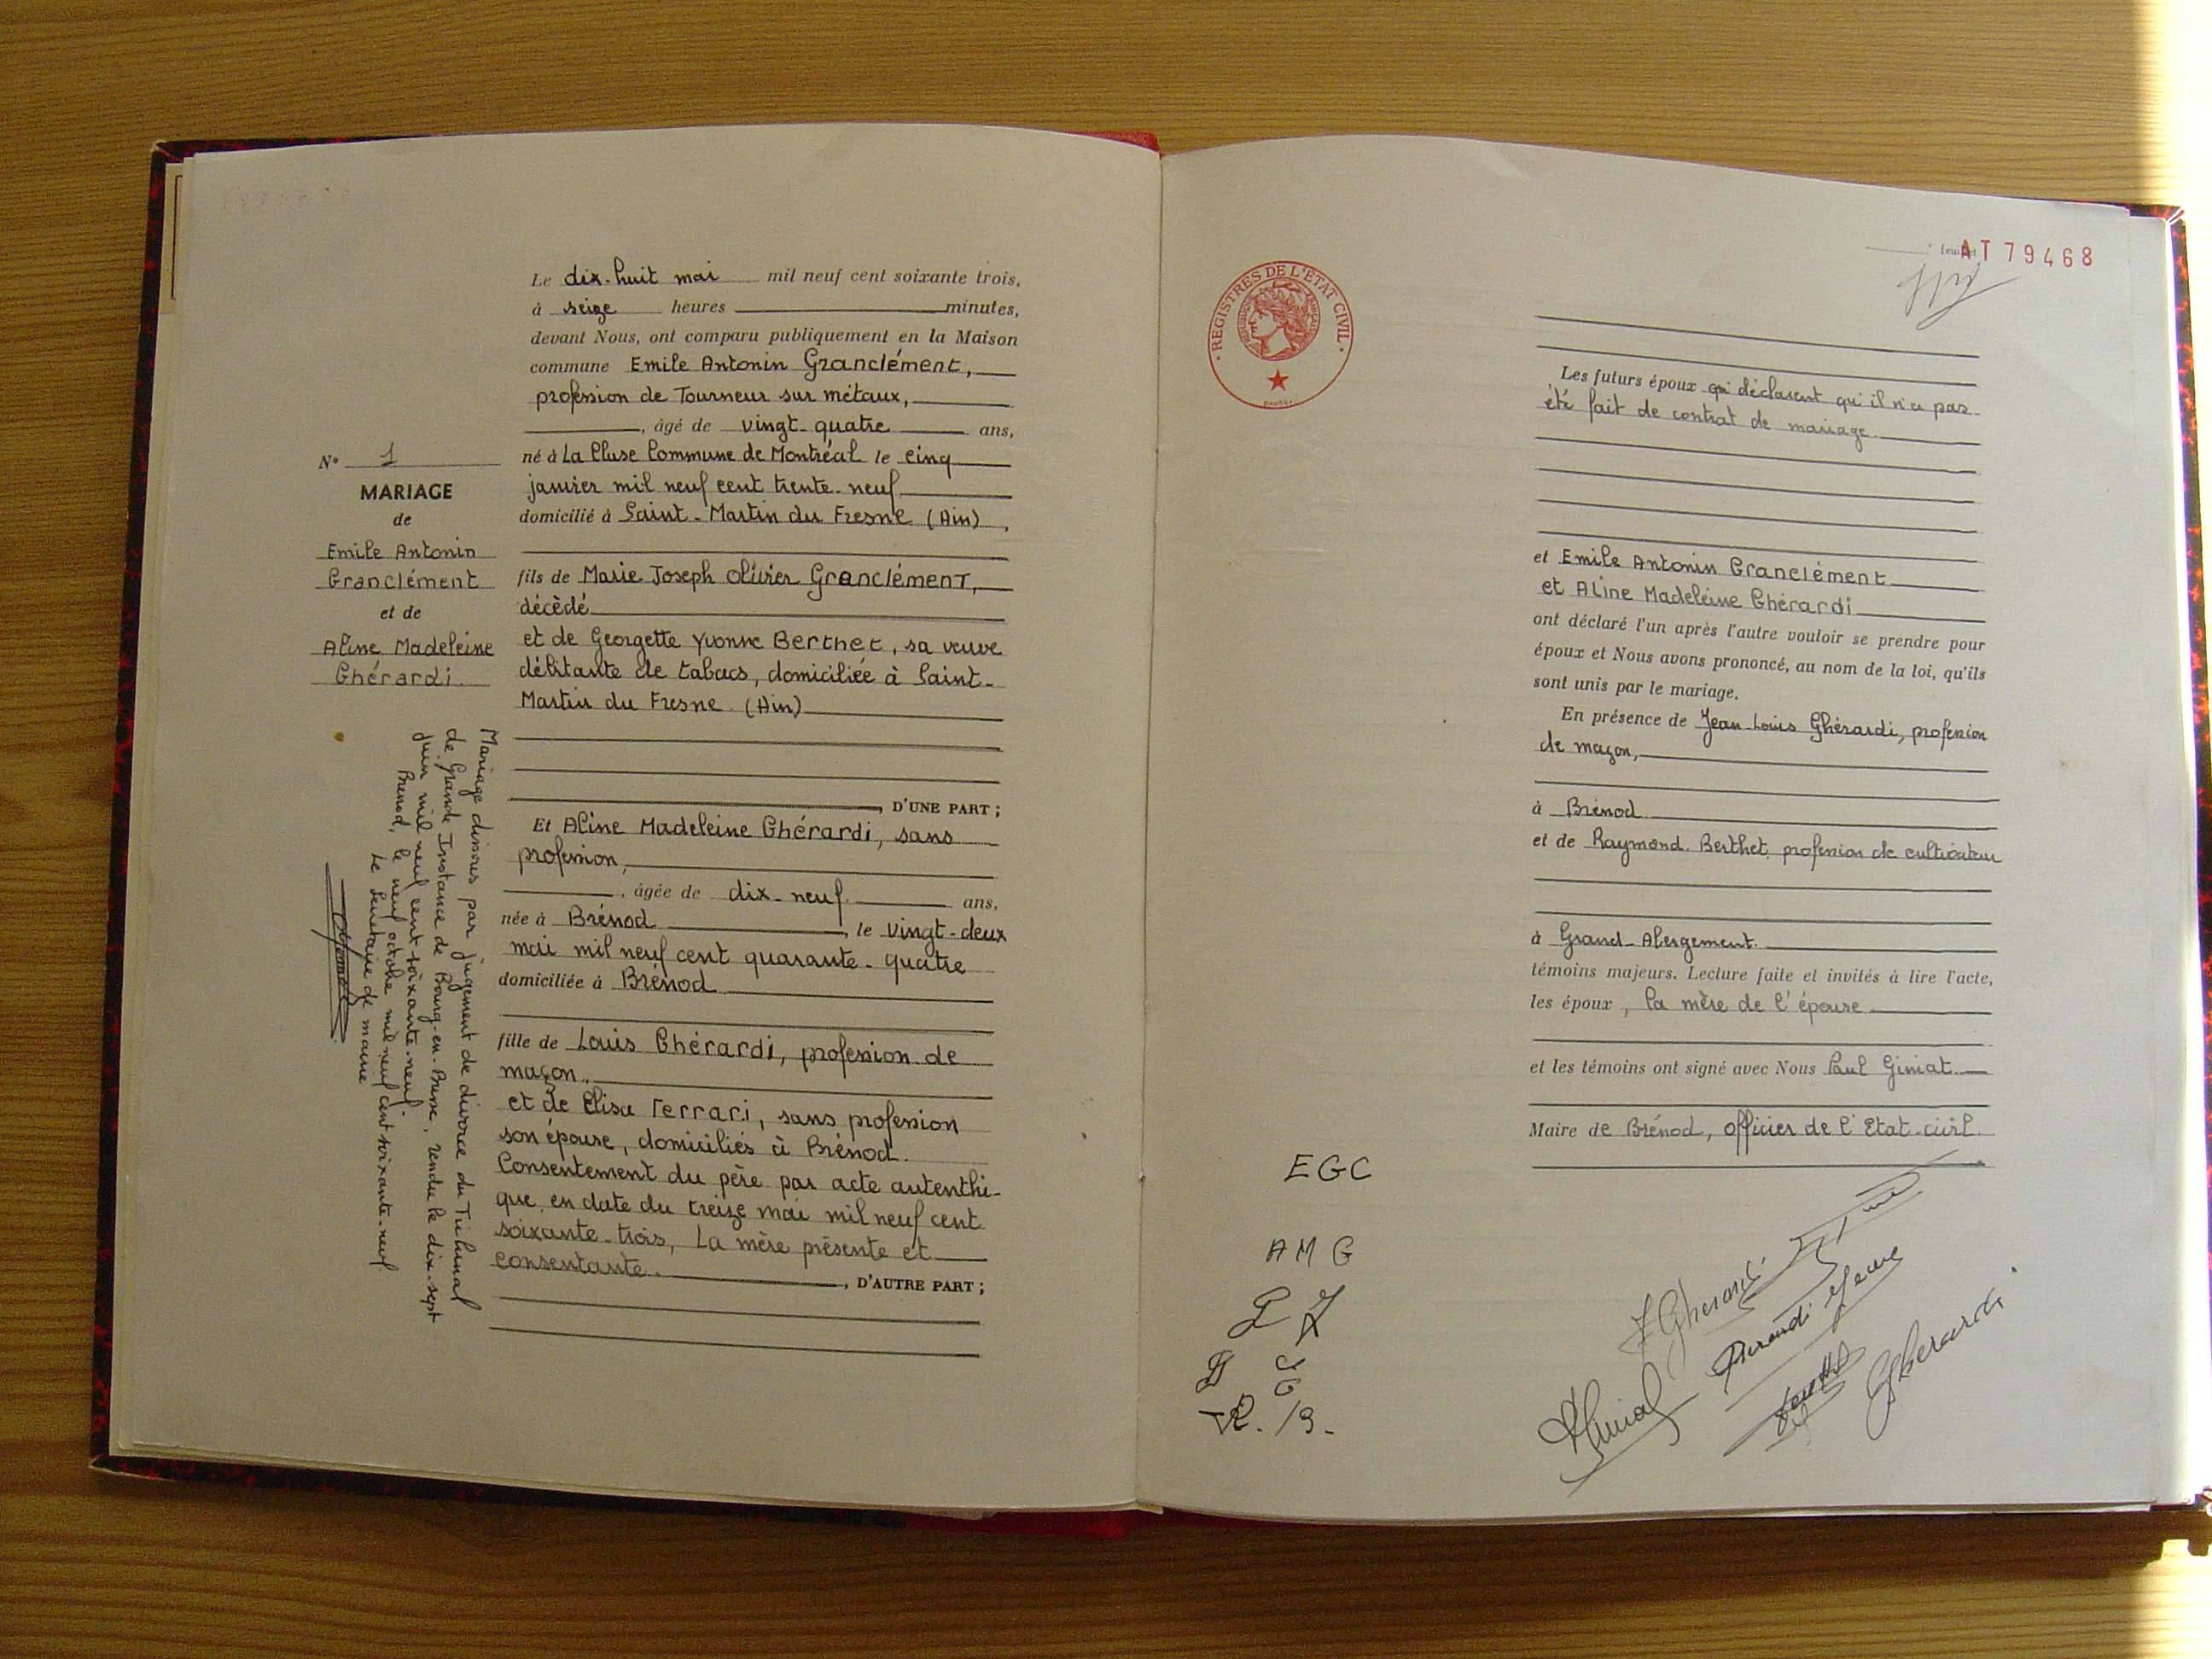 Le dix-huit mai mil neuf cent soixante trois,
à seize heures minutes,
devant Nous, ont comparu publiquement en la Maison
commune Emile Antonin Granclément,
profession de Tourneur sur métaux,
, âgé de vingt-quatre ans,
né à La Cluse Commune de Montréal le cinq
janvier mil neuf cent trente-neuf
domicilié à Saint-Martin du Fresne (Ain),
fils de Marie Joseph Olivier Granclément,
décédé
et de Georgette Yvonne Berthet, sa veuve
débitante de tabacs, domiciliée à Saint-
Martin du Fresne (Ain)
, D'UNE PART ;
Et Aline Madeleine Ghérardi, sans
profession,
, âgée de dix-neuf ans,
née à Brénod, le vingt-deux
mai mil neuf cent quarante-quatre
domiciliée à Brénod
fille de Louis Ghérardi, profession de
maçon.
et de Elisa Ferrari, sans profession
son épouse, domiciliés à Brénod.
Consentement du père par acte autenthi-
que, en date du treize mai mil neuf cent
soixante-trois, La mère présente et
consentante. , D'AUTRE PART ;
N° 1
MARIAGE
de
Emile Antonin
Granclément
et de
Aline Madeleine
Ghérardi.
Mariage dissous par jugement de divorce du Tribunal
de Grande Instance de Bourg-en-Bresse, rendu le dix-sept
juin mil neuf cent soixante-neuf.
Brénod, le neuf octobre mil neuf cent soixante-neuf
Le Secrétaire de mairie
feuillet
AT 79468
REGISTRES DE L'ÉTAT CIVIL
Les futurs époux déclarent qu'il n'a pas
été fait de contrat de mariage
et Emile Antonin Granclément
et Aline Madeleine Ghérardi
ont déclaré l'un après l'autre vouloir se prendre pour
époux et Nous avons prononcé, au nom de la loi, qu'ils
sont unis par le mariage.
En présence de Jean-Louis Ghérardi, profession
de maçon,
à Brénod
et de Raymond Berthet, profession de cultivateur
à Grand-Abergement.
témoins majeurs. Lecture faite et invités à lire l'acte,
les époux, la mère de l'épouse
et les témoins ont signé avec Nous Paul Giniat
Maire de Brénod, officier de l'Etat-civil.
EGC
AMG
R. B.
Gherardi
Gherardi